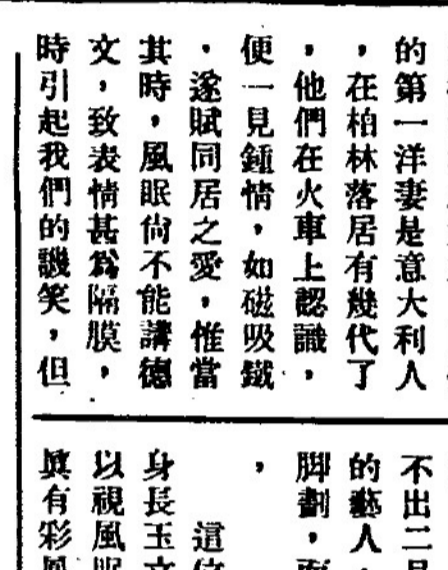 的第一洋妻是意大利人
，在柏林落居有幾代了
，他們在火車上認識，
便一見鍾情，如磁吸鐵
，遂賦同居之愛，惟當
其時，風眠尙不能講德
文，致表情甚爲隔膜，
時引起我們的譏笑，但
不出二
的藝人，
脚劃，
，
這
身長玉
以視風眠
眞有彩